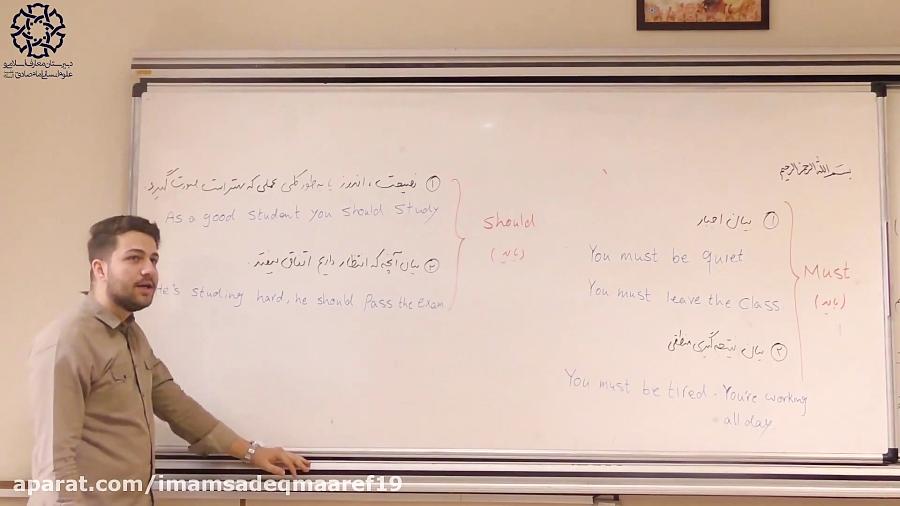 دبیرستان معارف اسلامی و
علوم انسانی امام صادق
بسم الله الرحمن الرحیم
Must
(باید)
① بیان اجبار
You must be quiet
You must leave the Class
② بیان نتیجه گیری منطقی
You must be tired. You're working
all day
Should
(باید)
① نصیحت، اندرز یا به طور کلی عملی که بهتر است صورت گیرد.
As a good student you should study
② بیان آنچه که انتظار داریم اتفاق بیفتد
He's studing hard, he should pass the exam
aparat.com/imamsadeqmaaref19